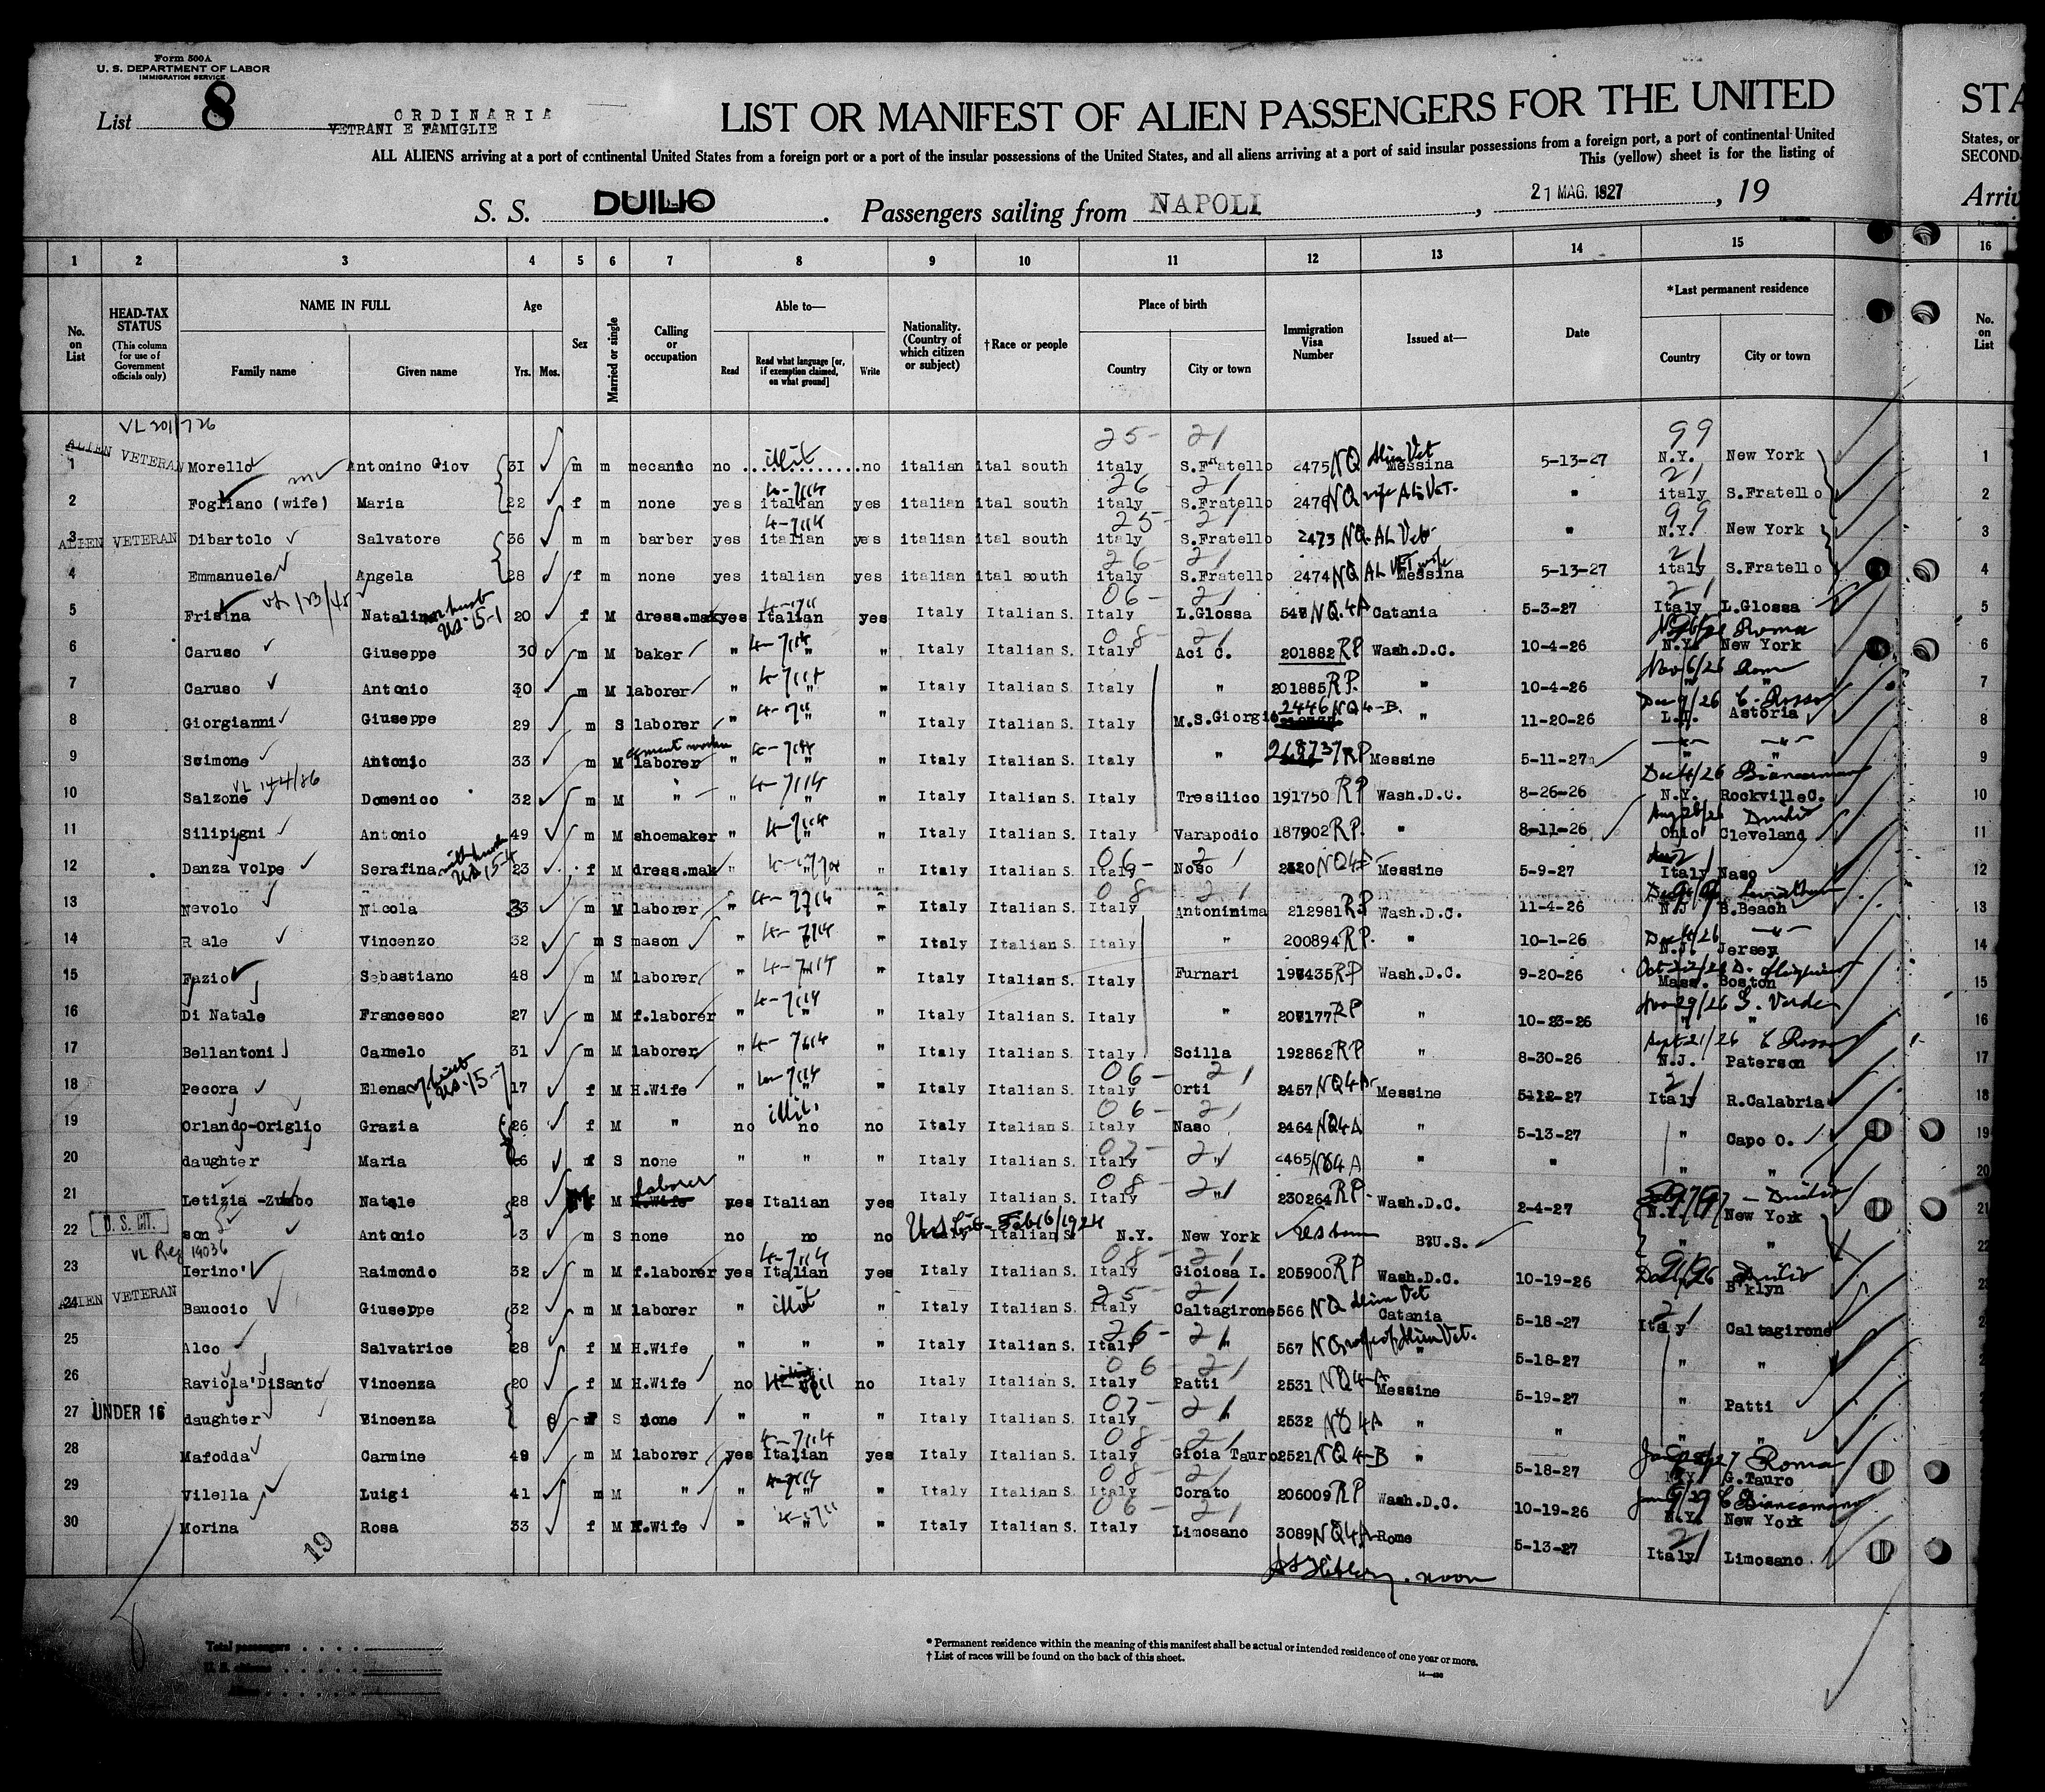 Form 500A
U. S. DEPARTMENT OF LABOR
IMMIGRATION SERVICE
List 8
ORDINARIA
VETRANI E FAMIGLIE
LIST OR MANIFEST OF ALIEN PASSENGERS FOR THE UNITED
STA
ALL ALIENS arriving at a port of continental United States from a foreign port or a port of the insular possessions of the United States, and all aliens arriving at a port of said insular possessions from a foreign port, a port of continental United
States, or
This (yellow) sheet is for the listing of
SECOND-
S. S. DUILIO. Passengers sailing from NAPOLI, 21 MAG. 1927, 19
Arriv
1 2 3 4 5 6 7 8 9 10 11 12 13 14 15 16
No. on List
HEAD-TAX STATUS
(This column for use of Government officials only)
NAME IN FULL
Family name
Given name
Age
Yrs. Mos.
Sex
Married or single
Calling or occupation
Able to—
Read
Read what language [or, if exemption claimed, on what ground]
Write
Nationality. (Country of which citizen or subject)
†Race or people
Place of birth
Country
City or town
Immigration Visa Number
Issued at—
Date
*Last permanent residence
Country
City or town
No. on List
VL 201/726
25- 21 99
ALIEN VETERAN
1 Morello Antonino Giov 31 m m mecanic no illit no italian ital south italy S.Fratello 2475 NQ Alien Vet Messina 5-13-27 N.Y. New York 1
26 - 21 21
2 Fogliano (wife) Maria 22 f m none yes italian yes italian ital south italy S.Fratello 2476 NQ wife Al. Vet. " italy S.Fratello 2
25- 21 99
ALIEN VETERAN
3 Dibartolo Salvatore 36 m m barber yes italian yes italian ital south italy S.Fratello 2473 NQ AL Vet " N.Y. New York 3
26- 21 21
4 Emmanuele Angela 28 f m none yes italian yes italian ital south italy S.Fratello 2474 NQ AL VET wife Messina 5-13-27 italy S.Fratello 4
06 - 21 21
5 Frisina Natalina US-15-1 20 f M dress.mak yes Italian yes Italy Italian S. Italy L.Glossa 548 NQ.4A Catania 5-3-27 Italy L.Glossa 5
08 - 21 Roma
6 Caruso Giuseppe 30 m M baker " " " Italy Italian S. Italy Aci C. 201882 RP Wash.D.C. 10-4-26 N.Y. New York 6
Nov 6/26 Roma
7 Caruso Antonio 30 m M laborer " " " Italy Italian S. Italy " 201885 RP. " 10-4-26 " " 7
2446 NQ 4-B. Dec 9/26 C. Rosso
8 Giorgianni Giuseppe 29 m S laborer " " " Italy Italian S. Italy M.S.Giorgio " 11-20-26 L.I. Astoria 8
cement worker
9 Scimone Antonio 33 m M laborer " " " Italy Italian S. Italy " 218737 RP Messine 5-11-27 " " 9
VL 144/86 Dec 4/26 Biancamano
10 Salzone Domenico 32 m M " " " " Italy Italian S. Italy Tresilico 191750 RP Wash.D.C. 8-26-26 N.Y. RockvilleC. 10
Aug 28/26 Duilio
11 Silipigni Antonio 49 m M shoemaker " " " Italy Italian S. Italy Varapodio 187902 RP. " 8-11-26 Ohio Cleveland 11
06 - 21
12 Danza Volpe Serafina US 15-4 23 f M dress.mak " " " Italy Italian S. Italy Noso 2520 NQ4 Messine 5-9-27 Italy Naso 12
08 - 21
13 Nevolo Nicola 33 m M laborer " " " Italy Italian S. Italy Antoninima 212981 RP Wash.D.C. 11-4-26 N.J. S.Beach 13
Dec 4/26
14 R ale Vincenzo 32 m S mason " " " Italy Italian S. Italy " 200894 RP. " 10-1-26 N.J. Jersey 14
Oct 22/26
15 Fazio Sebastiano 48 m M laborer " " " Italy Italian S. Italy Furnari 198435 RP Wash.D.C. 9-20-26 Mass. Boston 15
Nov 29/26 G. Verde
16 Di Natale Francesco 27 m M f.laborer " " " Italy Italian S. Italy " 208177 RP " 10-23-26 " " 16
Sept 21/26 C Rosso
17 Bellantoni Carmelo 31 m M laborer " " " Italy Italian S. Italy Scilla 192862 RP " 8-30-26 N.J. Paterson 17
06 - 21 21
18 Pecora Elena US-15-7 17 f M H.Wife " " " Italy Italian S. Italy Orti 2457 NQ4A Messine 5-12-27 Italy R.Calabria 18
06 - 21
19 Orlando-Origlio Grazia 26 f M " no illit. no no Italy Italian S. Italy Naso 2464 NQ4A " 5-13-27 " Capo O. 19
07 - 21
20 daughter Maria 6 f S none " " " Italy Italian S. Italy " 2465 NQ4A " " " " 20
08 - 21
21 Letizia -Zumbo Natale 28 M M laborer yes Italian yes Italy Italian S. Italy " 230264 RP Wash.D.C. 2-4-27 N.Y. New York 21
U. S. CIT.
22 son Antonio 3 m S none no no no US Cit- Feb 16/1924 Italian S. N.Y. New York B?U.S. " " 22
VL Reg 19036 08 - 21
23 Ierino' Raimondo 32 m M f.laborer yes Italian yes Italy Italian S. Italy Gioiosa I. 205900 RP Wash.D.C. 10-19-26 Duilio B'klyn 23
ALIEN VETERAN 25- 21
24 Bauccio Giuseppe 32 m M laborer " illit " Italy Italian S. Italy Caltagirone 566 NQ Alien Vet Catania 5-18-27 Italy Caltagirone
26 - 21
25 Alco Salvatrice 28 f M H.Wife " " " Italy Italian S. Italy " 567 NQ wife of Alien Vet. " 5-18-27 " "
06 - 21
26 Raviola'DiSanto Vincenza 20 f M H.Wife no no Italy Italian S. Italy Patti 2531 NQ4-A Messine 5-19-27 " Patti
07 - 21
27 UNDER 16 daughter Vincenza 8 f S none " " " Italy Italian S. Italy " 2532 NQ4A " " " "
08 - 21
28 Mafodda Carmine 49 m M laborer yes Italian yes Italy Italian S. Italy Gioia Tauro 2521 NQ 4-B " 5-18-27 Roma N.Y. G.Tauro
08 - 21
29 Vilella Luigi 41 m M " " " " Italy Italian S. Italy Corato 206009 RP Wash.D.C. 10-19-26 C Biancamano N.Y. New York
06 - 21 21
30 Morina Rosa 33 f M H.Wife " " " Italy Italian S. Italy Limosano 3089 NQ4A Rome 5-13-27 Italy Limosano
19
noon
Total passengers
U. S. citizens
Aliens
* Permanent residence within the meaning of this manifest shall be actual or intended residence of one year or more.
† List of races will be found on the back of this sheet.